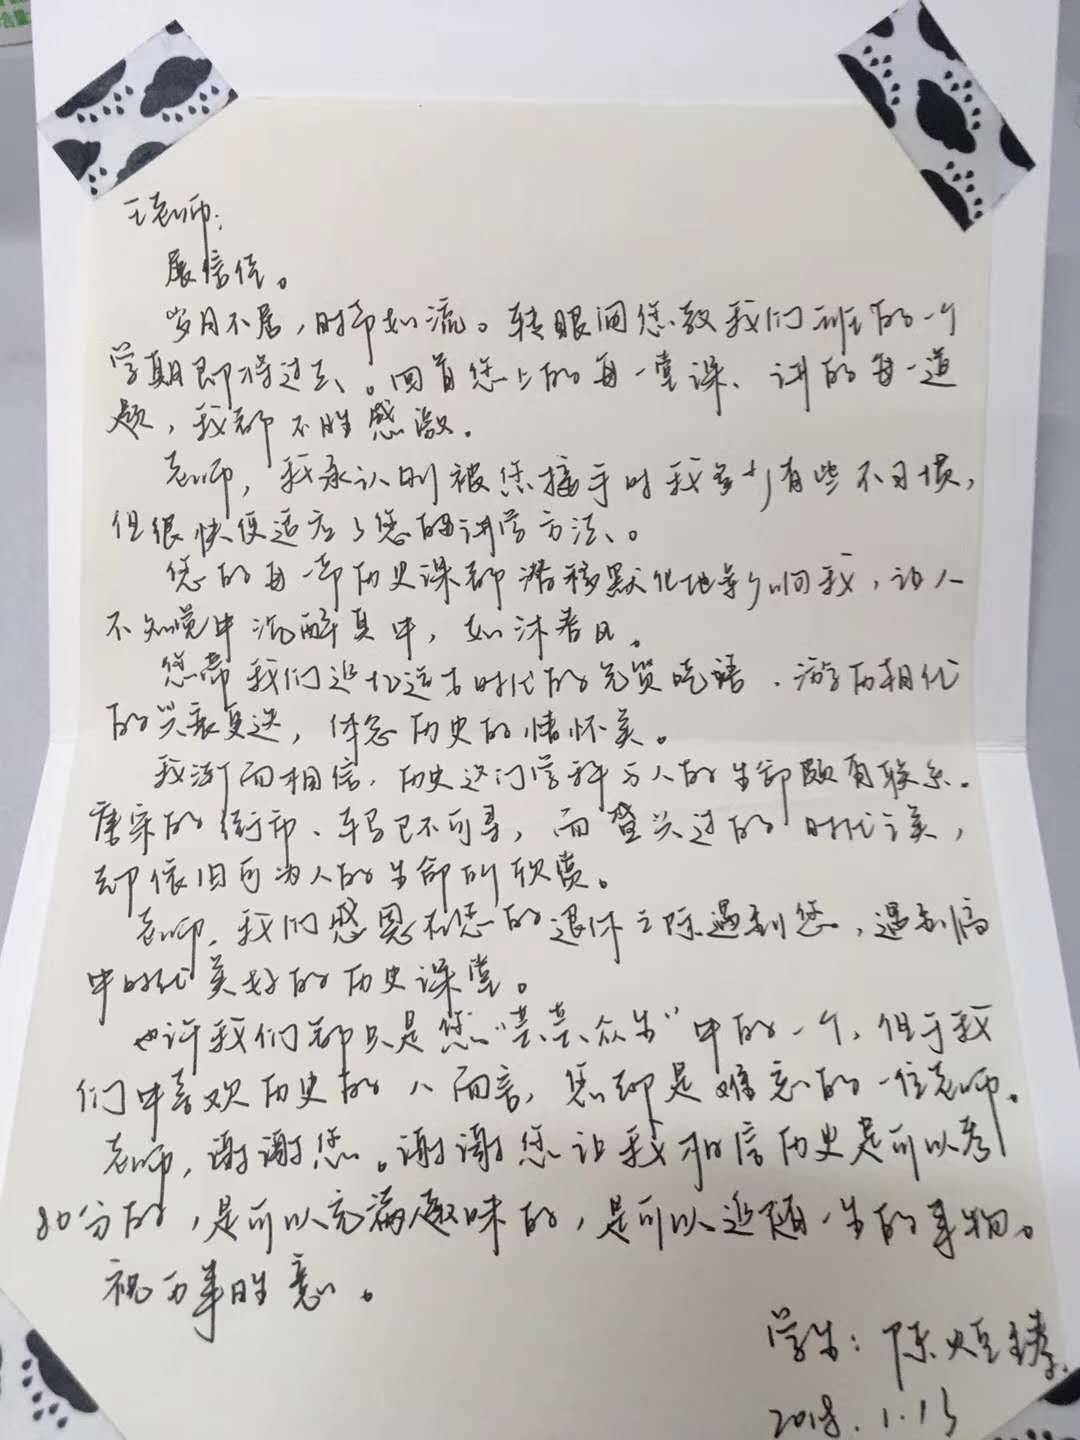 王老师:
展信佳。
岁月不居,时节如流。转眼间您教我们班的一个
学期即将过去。回首您上的每一堂课、讲的每一道
题,我都不胜感激。
老师,我承认刚被您接手时我多少有些不习惯,
但很快便适应了您的讲学方法。
您的每一节历史课都潜移默化地影响我,让人
不知觉中沉醉其中,如沐春风。
您带我们追忆远古时代的先贤说语、游历朝代
的兴衰更迭,体悉历史的情怀美。
我渐而相信,历史这门学科与人的生命颇有联系。
唐宋的街市、车马已不可寻,而曾兴过的时代之美,
却依旧可为人的生命所欣赏。
老师,我们感恩在您的退休之际遇到您,遇到高
中时代美好的历史课堂。
也许我们都只是您“芸芸众生”中的一个,但于我
们中喜欢历史的人而言,您却是难忘的一位老师。
老师,谢谢您。谢谢您让我相信历史是可以考
80分的,是可以充满趣味的,是可以追随一生的事物。
祝万事胜意。
学生:陈
2018.1.13